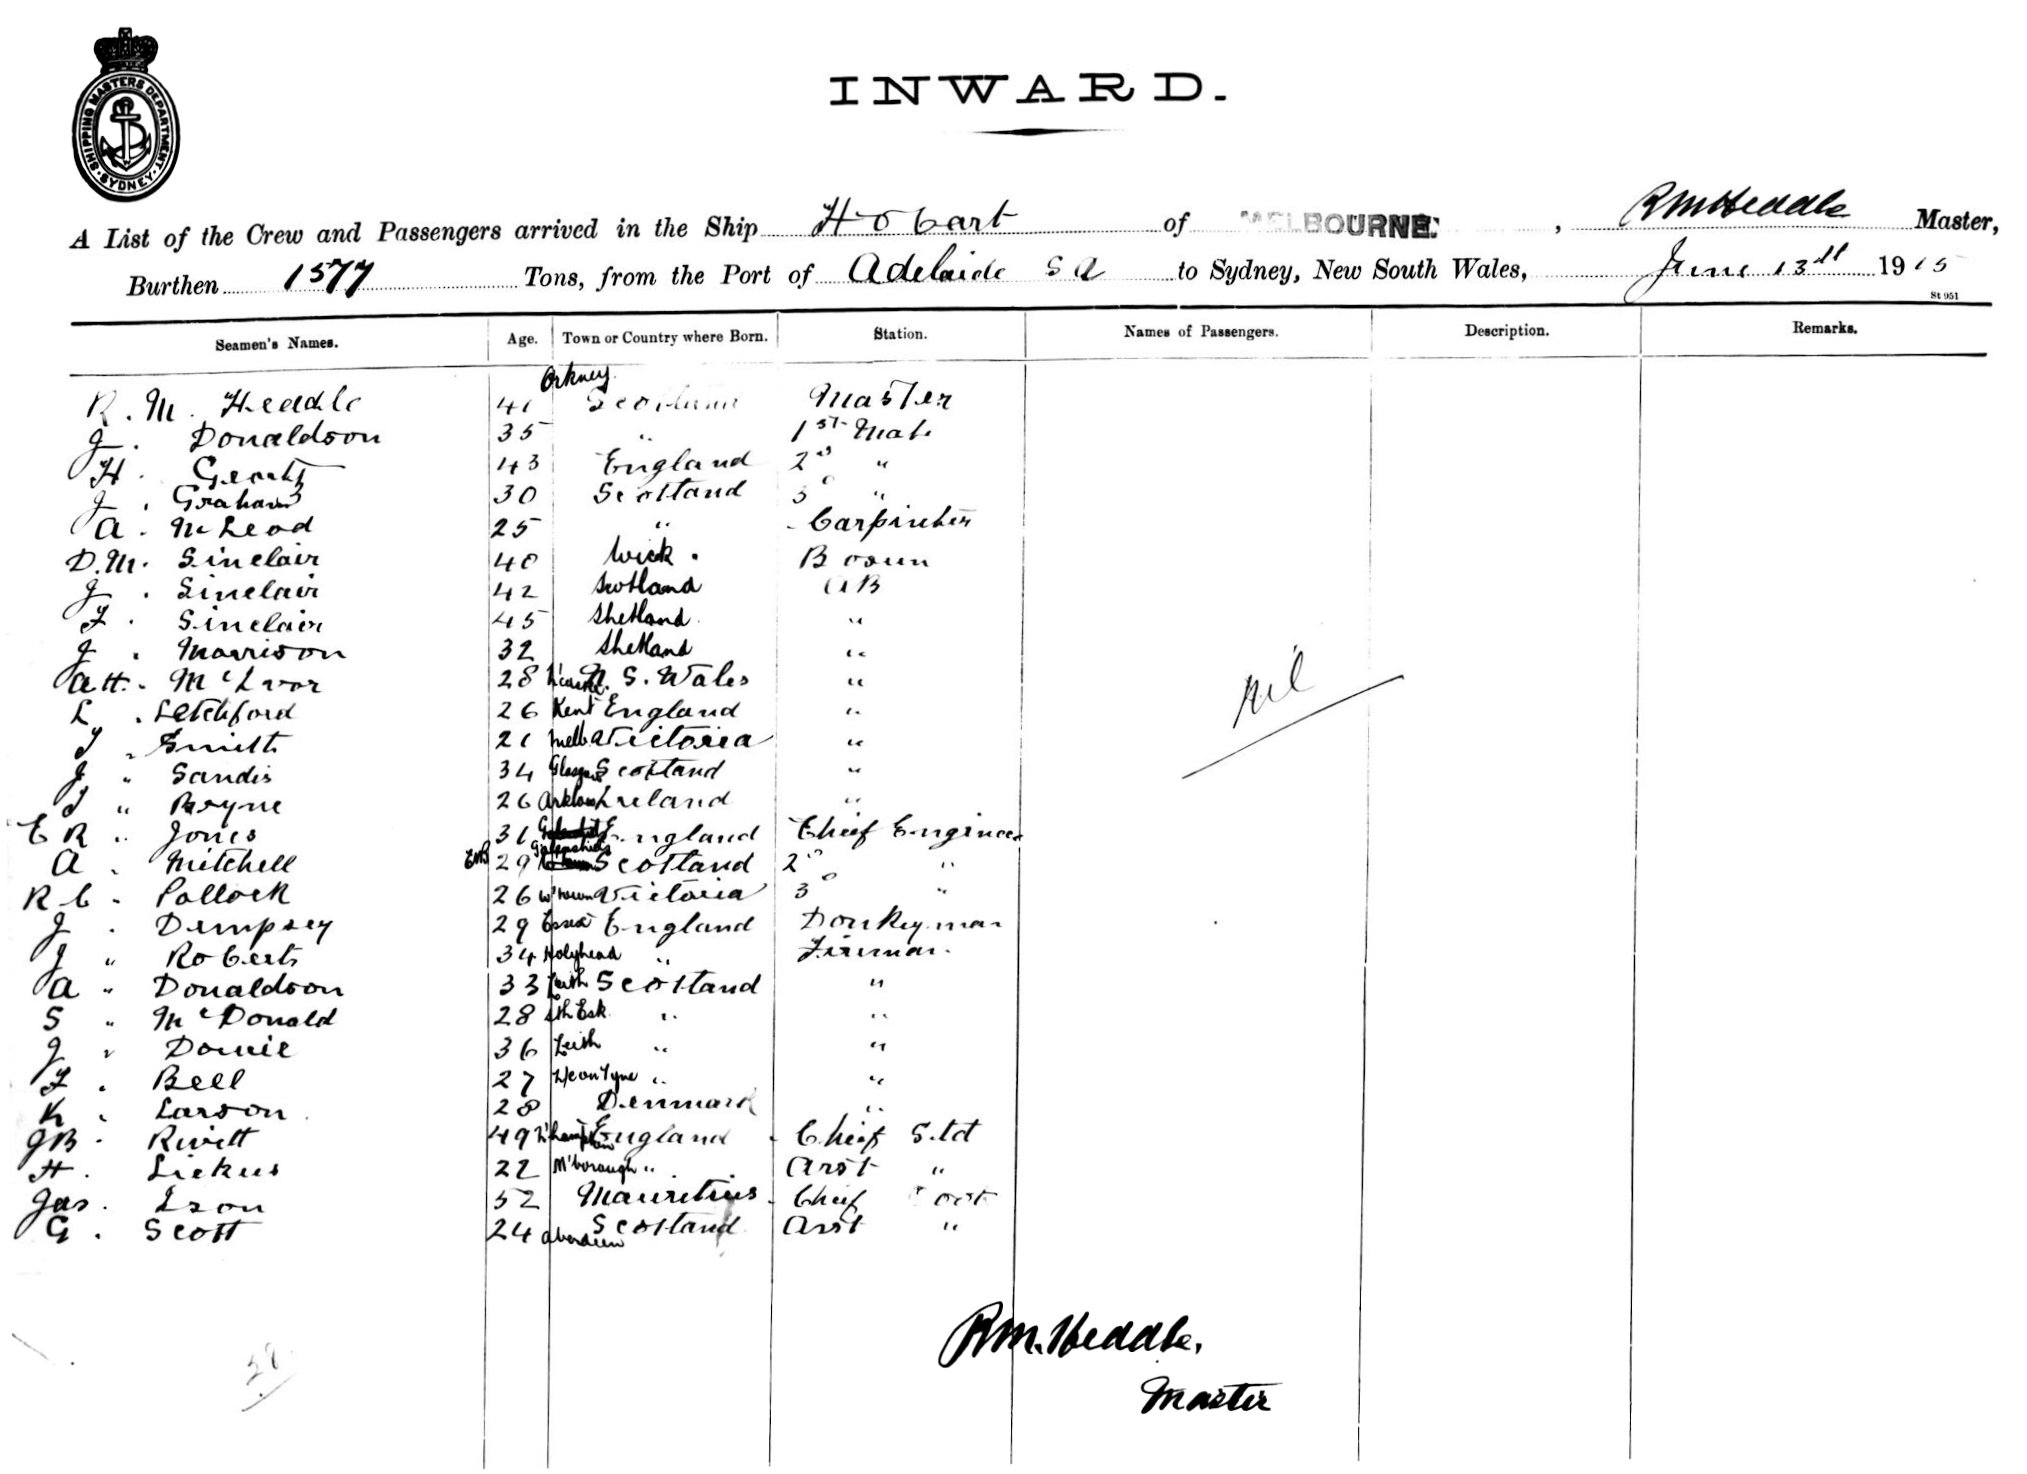 SHIPPING MASTERS DEPARTMENT. SYDNEY.
INWARD.
A List of the Crew and Passengers arrived in the Ship Hobart of MELBOURNE. , RM Heddle Master,
Burthen 1577 Tons, from the Port of Adelaide S A to Sydney, New South Wales, June 13th 1915
St 951
Seamen's Names. Age. Town or Country where Born. Station. Names of Passengers. Description. Remarks.
Orkney
R. M. Heddle 41 Scotland Master
J. Donaldson 35 " 1st Mate
H. 43 England 2d "
J. Graham 30 Scotland 3d "
A. McLeod 25 " Carpinter
D. M. Sinclair 40 Wick. Bosun
J. Sinclair 42 Scotland AB
F. Sinclair 45 Shetland "
J. Morrison 32 Shetland "
A H. McIvor 28 N'castle N. S. Wales "
L. Letchford 26 Kent England "
J " Smith 21 Melb Victoria "
J " Sandis 34 Glasgow Scotland "
J " Bryne 26 Arklow Ireland "
E R " Jones 31 England Chief Engineer
A. Mitchell EMB 29 Galashiels Scotland 2d "
R C. Pollock 26 W'town Victoria 3d "
J. Dempsey 29 Essex England Donkeyman
J " Roberts 34 Holyhead " Fireman.
A " Donaldson 33 Leith Scotland "
S " McDonald 28 Sth Esk " "
J " 36 Leith " "
F. Bell 27 " "
K. Larson 28 Denmark "
JB. Rivett 49 England Chief Std
H. Liekus 22 M'borough " Asst "
Jas. Ison 52 Mauritius Chief Cook
G. Scott 24 Aberdeen Scotland Asst "
nil
28
RM. Heddle.
Master